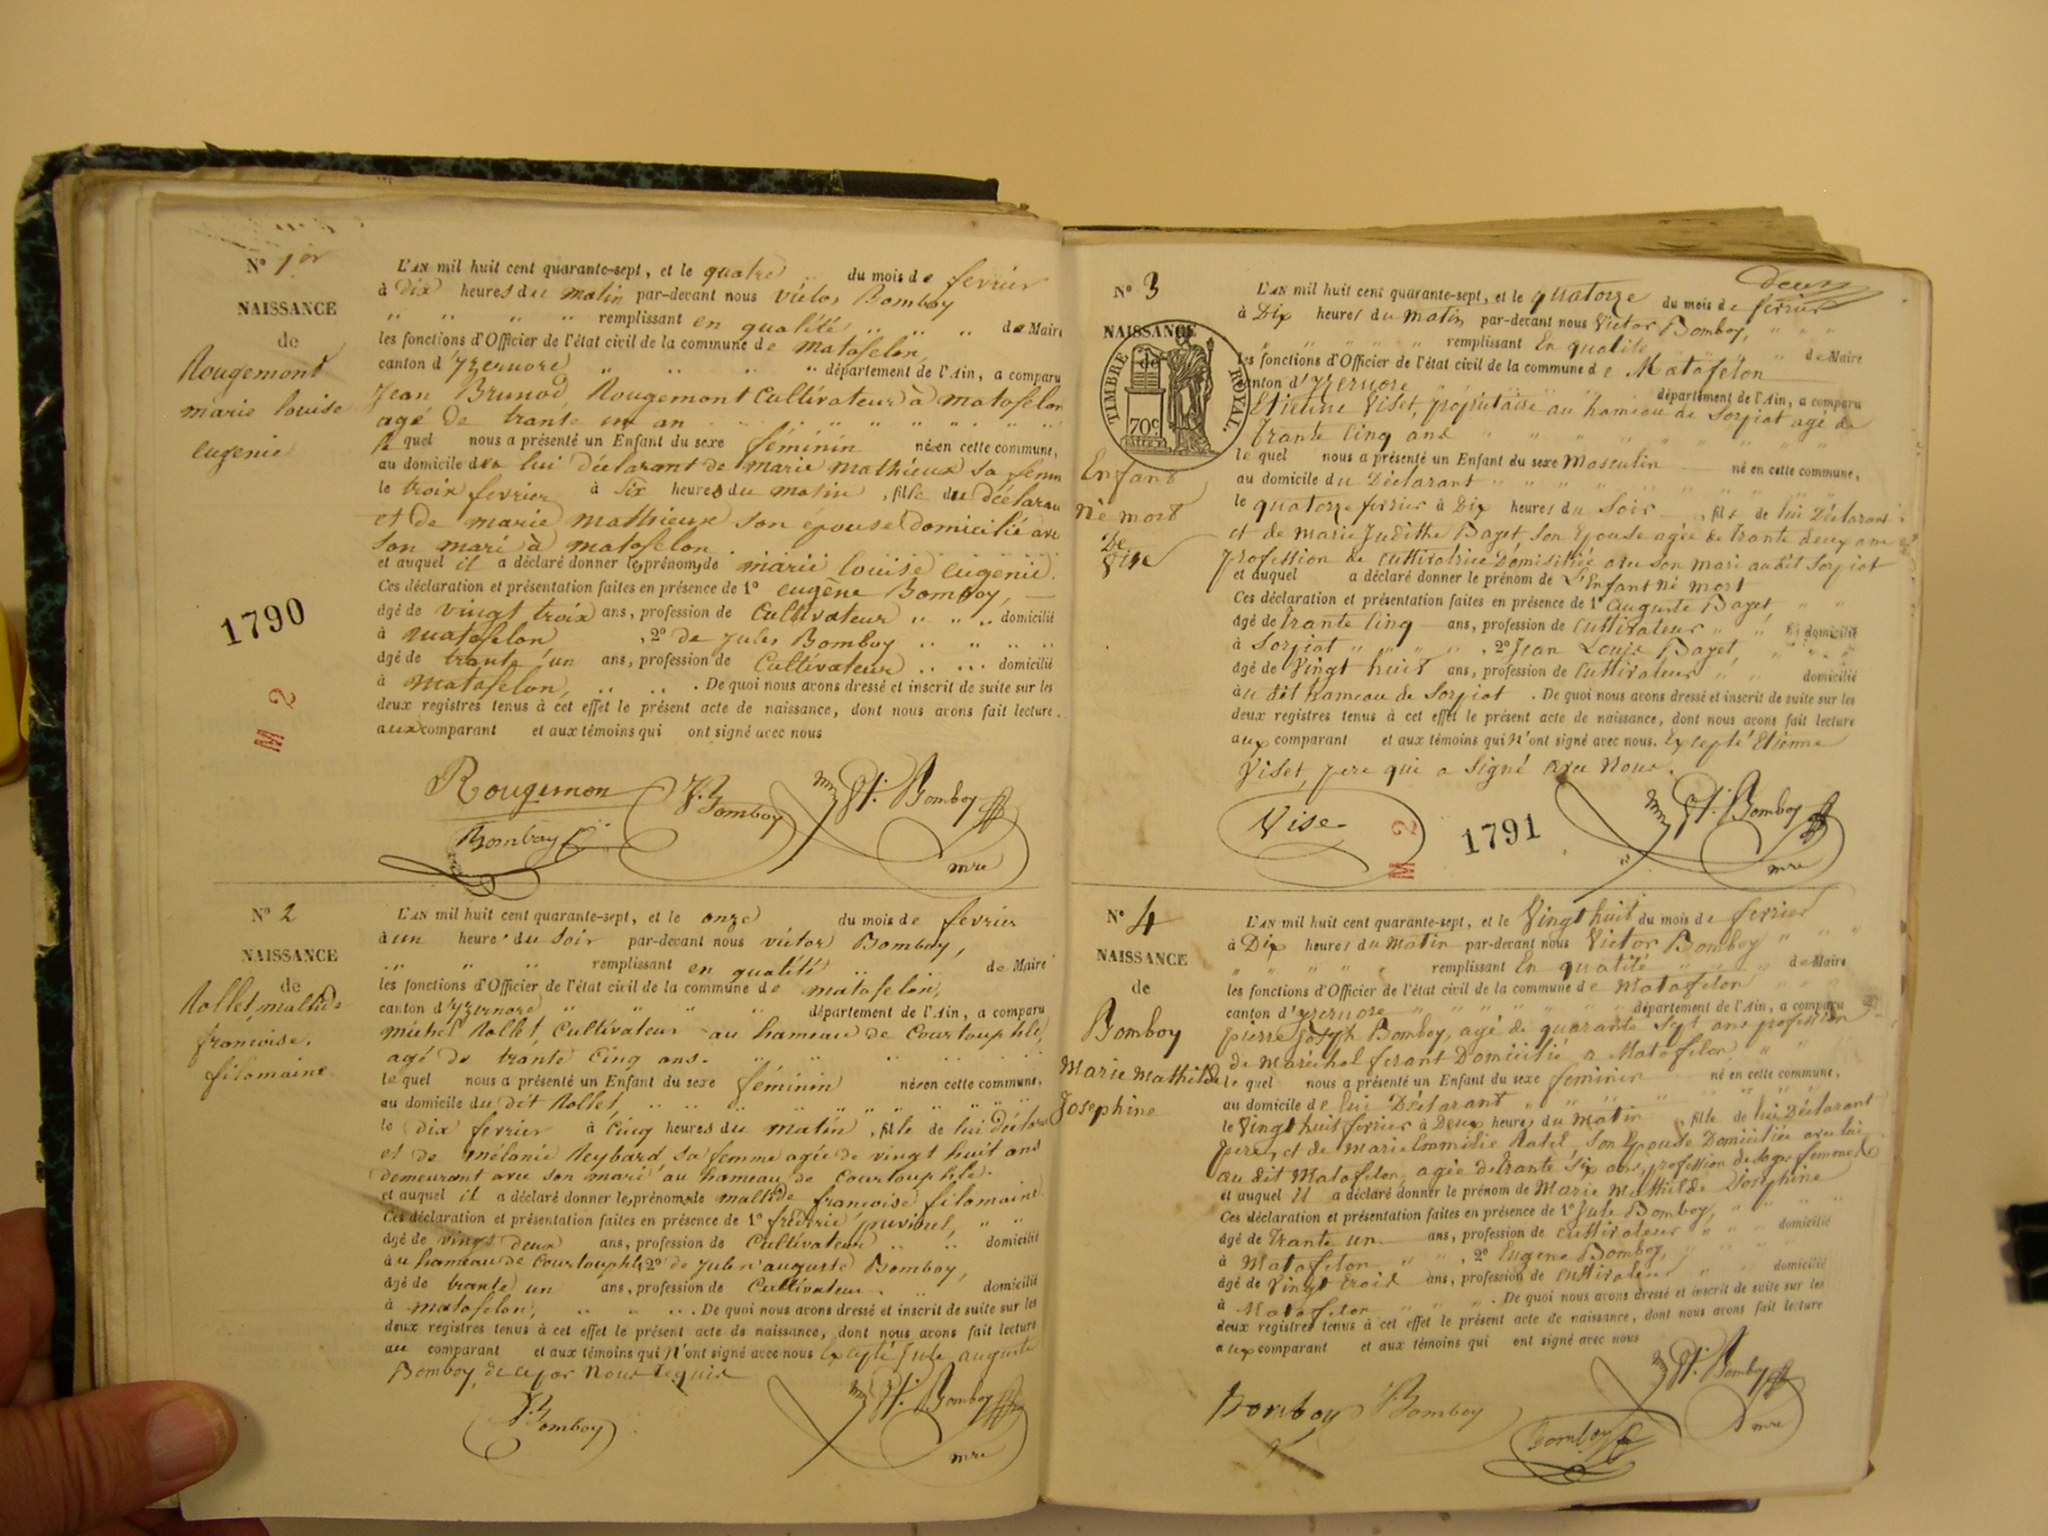 N° 1er
NAISSANCE
de
Rougemont
marie louise
eugenie
L'AN mil huit cent quarante-sept, et le quatre du mois de fevrier
à Dix heures du matin par-devant nous victor Bomboy
remplissant en qualité de Maire
les fonctions d'Officier de l'état civil de la commune de matafelon
canton d'yzernore département de l'Ain, a comparu
Jean Brunod Rougemont Cultivateur à matafelon
agé de trante un an
le quel nous a présenté un Enfant du sexe féminin né en cette commune,
au domicile de lui déclarant de marie mathieux sa femm
le troix fevrier à six heures du matin, fille du déclaran
et de marie mathieux son épouse domicilié ave
son mari à matafelon
et auquel il a déclaré donner les prénoms de marie louise eugenie.
Ces déclaration et présentation faites en présence de 1° eugène Bomboy,
âgé de vingt troix ans, profession de Cultivateur domicilié
à matafelon, 2° de jules Bomboy
âgé de trante un ans, profession de Cultivateur domicilié
à matafelon, . De quoi nous avons dressé et inscrit de suite sur les
deux registres tenus à cet effet le présent acte de naissance, dont nous avons fait lecture.
aux comparant et aux témoins qui ont signé avec nous
Rougemon J. Bomboy Vt. Bomboy
Bomboy mre
1790
M 2
N° 2
NAISSANCE
de
Rollet, matilde
francoise,
filomaine
L'AN mil huit cent quarante-sept, et le onze du mois de fevrier
à un heure du soir par-devant nous victor Bomboy,
remplissant en qualité de Maire
les fonctions d'Officier de l'état civil de la commune de matafelon,
canton d'yzernore département de l'Ain, a comparu
michel Rollet, Cultivateur au hameau de Courtouphle,
agé de trante cinq ans.
le quel nous a présenté un Enfant du sexe féminin né en cette commune,
au domicile du dit Rollet
le dix fevrier à cinq heures du matin, fille de lui déclara
et de mélanie Reybard sa femme agée de vingt huit ans
demeurant avec son mari au hameau de Courtouphle.
et auquel il a déclaré donner les prénoms de matilde francoise filomaine
Ces déclaration et présentation faites en présence de 1° frédéric
âgé de vingt deux ans, profession de Cultivateur domicilié
à u hameau de Courtouphle, 2° de jules auguste Bomboy,
âgé de trante un ans, profession de Cultivateur domicilié
à matafelon, . De quoi nous avons dressé et inscrit de suite sur les
deux registres tenus à cet effet le présent acte de naissance, dont nous avons fait lecture
au comparant et aux témoins qui n'ont signé avec nous Excepté Jule auguste
Bomboy, de ce par Nous Requis
J. Bomboy Vt. Bomboy
mre
deux
N° 3
NAISSANCE
de
TIMBRE ROYAL.
70c
Enfant
Né mort
De
Vise
L'AN mil huit cent quarante-sept, et le quatorze du mois de fevrier
à Dix heures du matin par-devant nous Victor Bomboy,
remplissant En qualité de Maire
les fonctions d'Officier de l'état civil de la commune de Matafélon
canton d'yzernore département de l'Ain, a comparu
Etienne Viset, propriétaire au hameau de Sorpiat agé de
trante Cinq ans
le quel nous a présenté un Enfant du sexe Masculin né en cette commune,
au domicile du Déclarant
le quatorze fevrier à Dix heures du soir, fils de lui Déclarant
et de marie Judithe Baget, son Epouse agée de trante deux ans
profession de cultivatrice Domicilliée avec son mari au dit Sorpiat
et auquel a déclaré donner le prénom de L'Enfant Né mort
Ces déclaration et présentation faites en présence de 1° Auguste Baget,
âgé de trante Cinq ans, profession de cultivateur domicilié
à Sorpiat, 2° Jean Louis Baget,
âgé de Vingt huit ans, profession de cultivateur domicilié
à u dit hameau de Sorpiat . De quoi nous avons dressé et inscrit de suite sur les
deux registres tenus à cet effet le présent acte de naissance, dont nous avons fait lecture
aux comparant et aux témoins qui n'ont signé avec nous. Excepté Etienne
Viset, pere qui a signé avec nous.
Vise Vt. Bomboy
mre
M 2
1791
N° 4
NAISSANCE
de
Bomboy
Marie Mathilde
Josephine
L'AN mil huit cent quarante-sept, et le Vingt huit du mois de fevrier
à Dix heures du matin par-devant nous Victor Bomboy
remplissant En qualité de Maire
les fonctions d'Officier de l'état civil de la commune de Matafélon
canton d'yzernore département de l'Ain, a comparu
pierre Joseph Bomboy, agé de quarante sept ans profession
de maréchal ferant Domicilié a Matafelon
le quel nous a présenté un Enfant du sexe feminin né en cette commune,
au domicile de lui Déclarant
le Vingt huit fevrier à Deux heures du matin, fille de lui Déclarant
pere, et de marie Emmélie Ratel, son Epouse Domiciliée avec lui
au dit Matafelon, agée de trante six ans, profession de sage femme
et auquel il a déclaré donner le prénom de Marie Mathilde Josephine
Ces déclaration et présentation faites en présence de 1° Jule Bomboy,
âgé de trante un ans, profession de cultivateur domicilié
à Matafelon, 2° Eugene Bomboy,
âgé de Vingt troix ans, profession de cultivateur domicilié
à Matafelon . De quoi nous avons dressé et inscrit de suite sur les
deux registres tenus à cet effet le présent acte de naissance, dont nous avons fait lecture
aux comparant et aux témoins qui ont signé avec nous
Bomboy J. Bomboy Vt. Bomboy
Bomboy mre